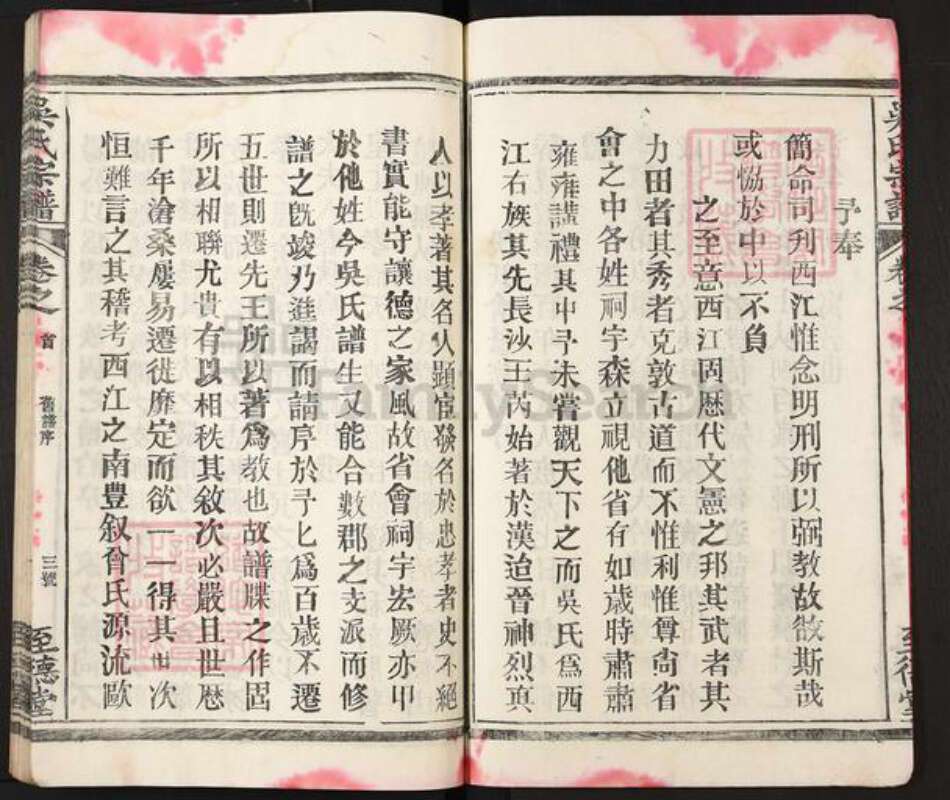 予奉
簡命司刋西江惟念明刑所以弼敎故欲斯哉
或恊於中以不負
之至意西江固歷代文憲之邦其武者其
力田者其秀者克敦古道而不惟利惟尊尙省
會之中各姓祠宇森立視他省有如歲時肅肅
雍雍講禮其中予未嘗觀天下之而吳氏爲西
江右族其先長沙王芮始著於漢迨晉神烈眞
人以孝著其名人顯宦發名於忠孝者史不絕
書實能守讓德之家風故省會祠宇宏厥亦甲
於他姓今吳氏譜生又能合數郡之支派而修
譜之旣竣乃進謁而請序於予匕爲百歲不遷
五世則遷先王所以著爲敎也故譜牒之作固
所以相聯尤貴有以相秩其敘次必嚴且世歷
千年滄桑屢易遷徙靡定而欲一一得其世次
恒難言之其稽考西江之南豊叙曾氏源流歐
吳氏宗譜
卷之
首
舊譜序
三號
至德堂
FamilySearch